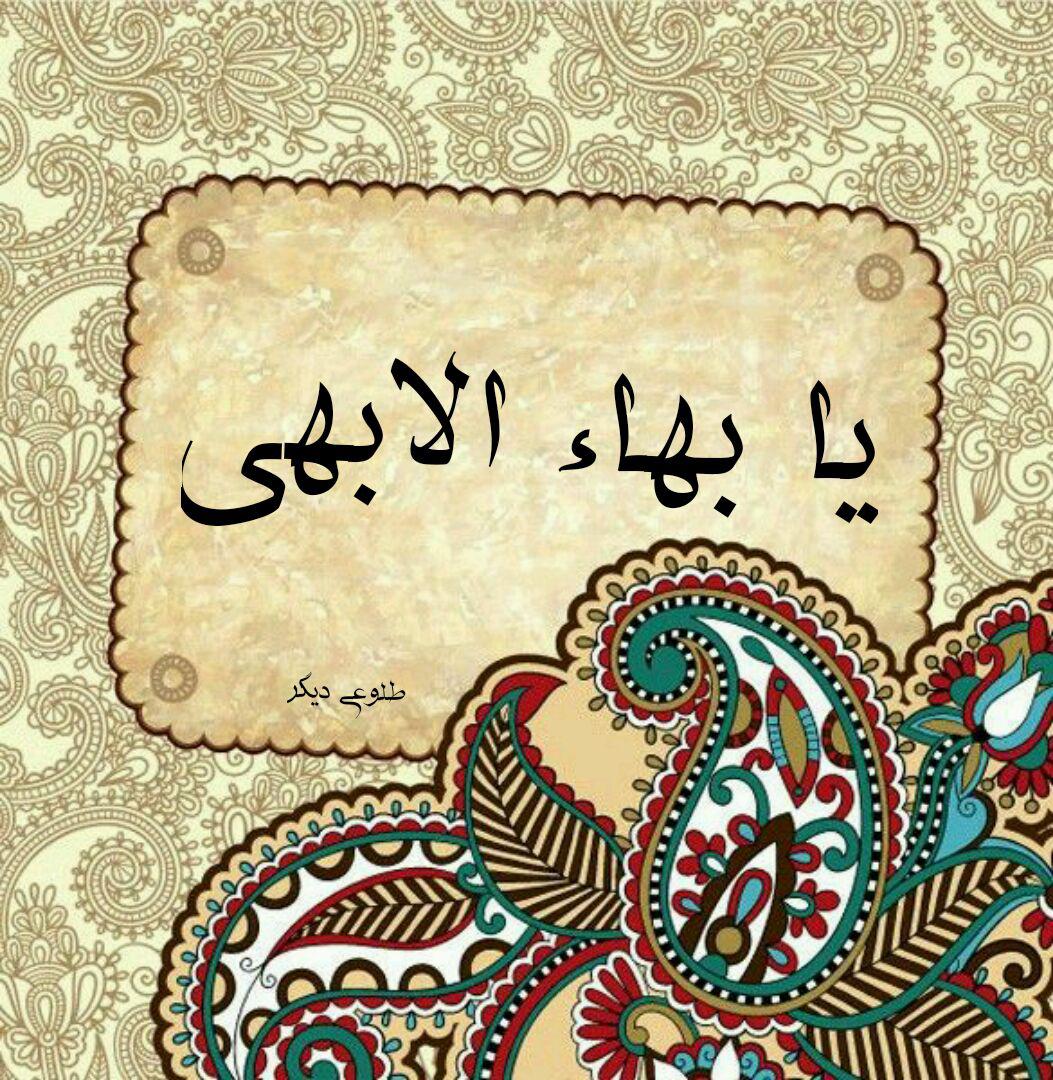 يا بهاء الابهى
طلوعی دیگر